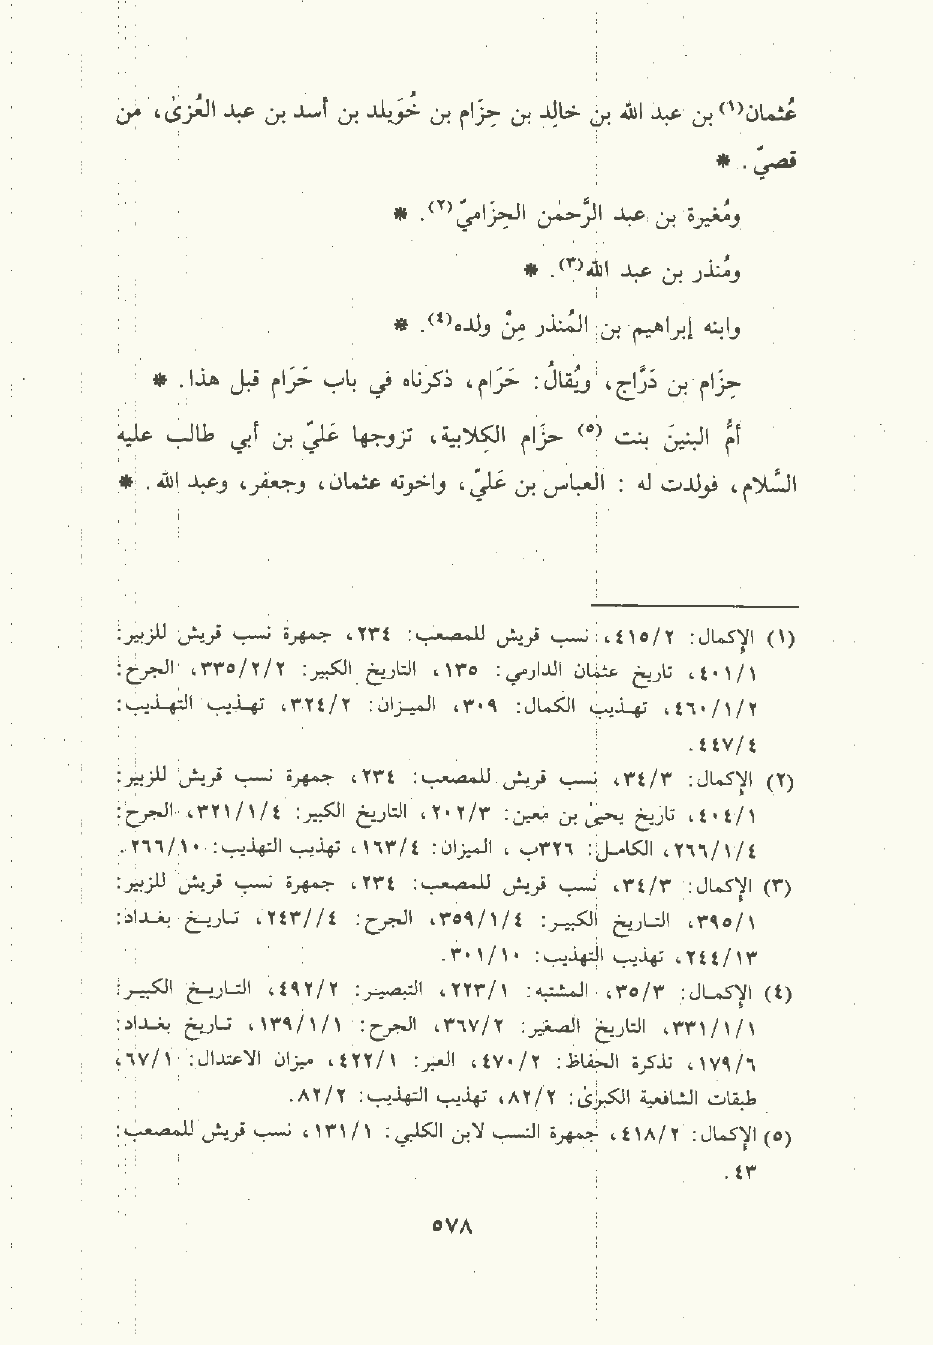 عُثمان(١) بن عبد الله بن خالِد بن حِزَام بن خُوَيلد بن أسد بن عبد العُزىٰ، من
قصيّ. *
ومُغيرة بن عبد الرَّحمٰن الحِزَاميّ(٢). *
ومُنذر بن عبد الله(٣). *
وابنه إبراهيم بن المُنذر مِنْ ولده(٤). *
حِزَام بن دَرَّاج، ويُقالُ: حَرَام، ذكرناه في باب حَرَام قبل هذا. *
أمُّ البنينَ بنت (٥) حزَام الكِلابية، تزوجها عَليّ بن أبي طالب عليه
السَّلام، فولدت له : العباس بن عَليّ، واخوته عثمان، وجعفر، وعبد الله. *
(١) الإكمال: ٤١٥/٢، نسب قريش للمصعب: ٢٣٤، جمهرة نسب قريش للزبير:
٤٠١/١، تاريخ عثمان الدارمي: ١٣٥، التاريخ الكبير: ٣٣٥/٢/٢، الجرح:
٤٦٠/١/٢، تهذيب الكمال: ٣٠٩، الميزان: ٣٢٤/٢، تهذيب التهذيب:
٤٤٧/٤.
(٢) الإكمال: ٣٤/٣، نسب قريش للمصعب: ٢٣٤، جمهرة نسب قريش للزبير:
٤٠٤/١، تاريخ يحيىٰ بن معين: ٢٠٢/٣، التاريخ الكبير: ٣٢١/١/٤، الجرح:
٢٦٦/١/٤، الكامل: ٣٢٦ب ، الميزان: ١٦٣/٤، تهذيب التهذيب: ٢٦٦/١٠.
(٣) الإكمال: ٣٤/٣، نسب قريش للمصعب: ٢٣٤، جمهرة نسب قريش للزبير:
٣٩٥/١، التاريخ الكبير: ٣٥٩/١/٤، الجرح: ٢٤٣//٤، تاريخ بغداد:
٢٤٤/١٣، تهذيب التهذيب: ٣٠١/١٠.
(٤) الإكمال: ٣٥/٣، المشتبه: ٢٢٣/١، التبصير: ٤٩٢/٢، التاريخ الكبير:
٣٣١/١/١، التاريخ الصغير: ٣٦٧/٢، الجرح: ١٣٩/١/١، تاريخ بغداد:
١٧٩/٦، تذكرة الحفاظ: ٤٧٠/٢، العبر: ٤٢٢/١، ميزان الاعتدال: ٦٧/١،
طبقات الشافعية الكبرىٰ: ٨٢/٢، تهذيب التهذيب: ٨٢/٢.
(٥) الإكمال: ٤١٨/٢، جمهرة النسب لابن الكلبي: ١٣١/١، نسب قريش للمصعب:
٤٣.
٥٧٨